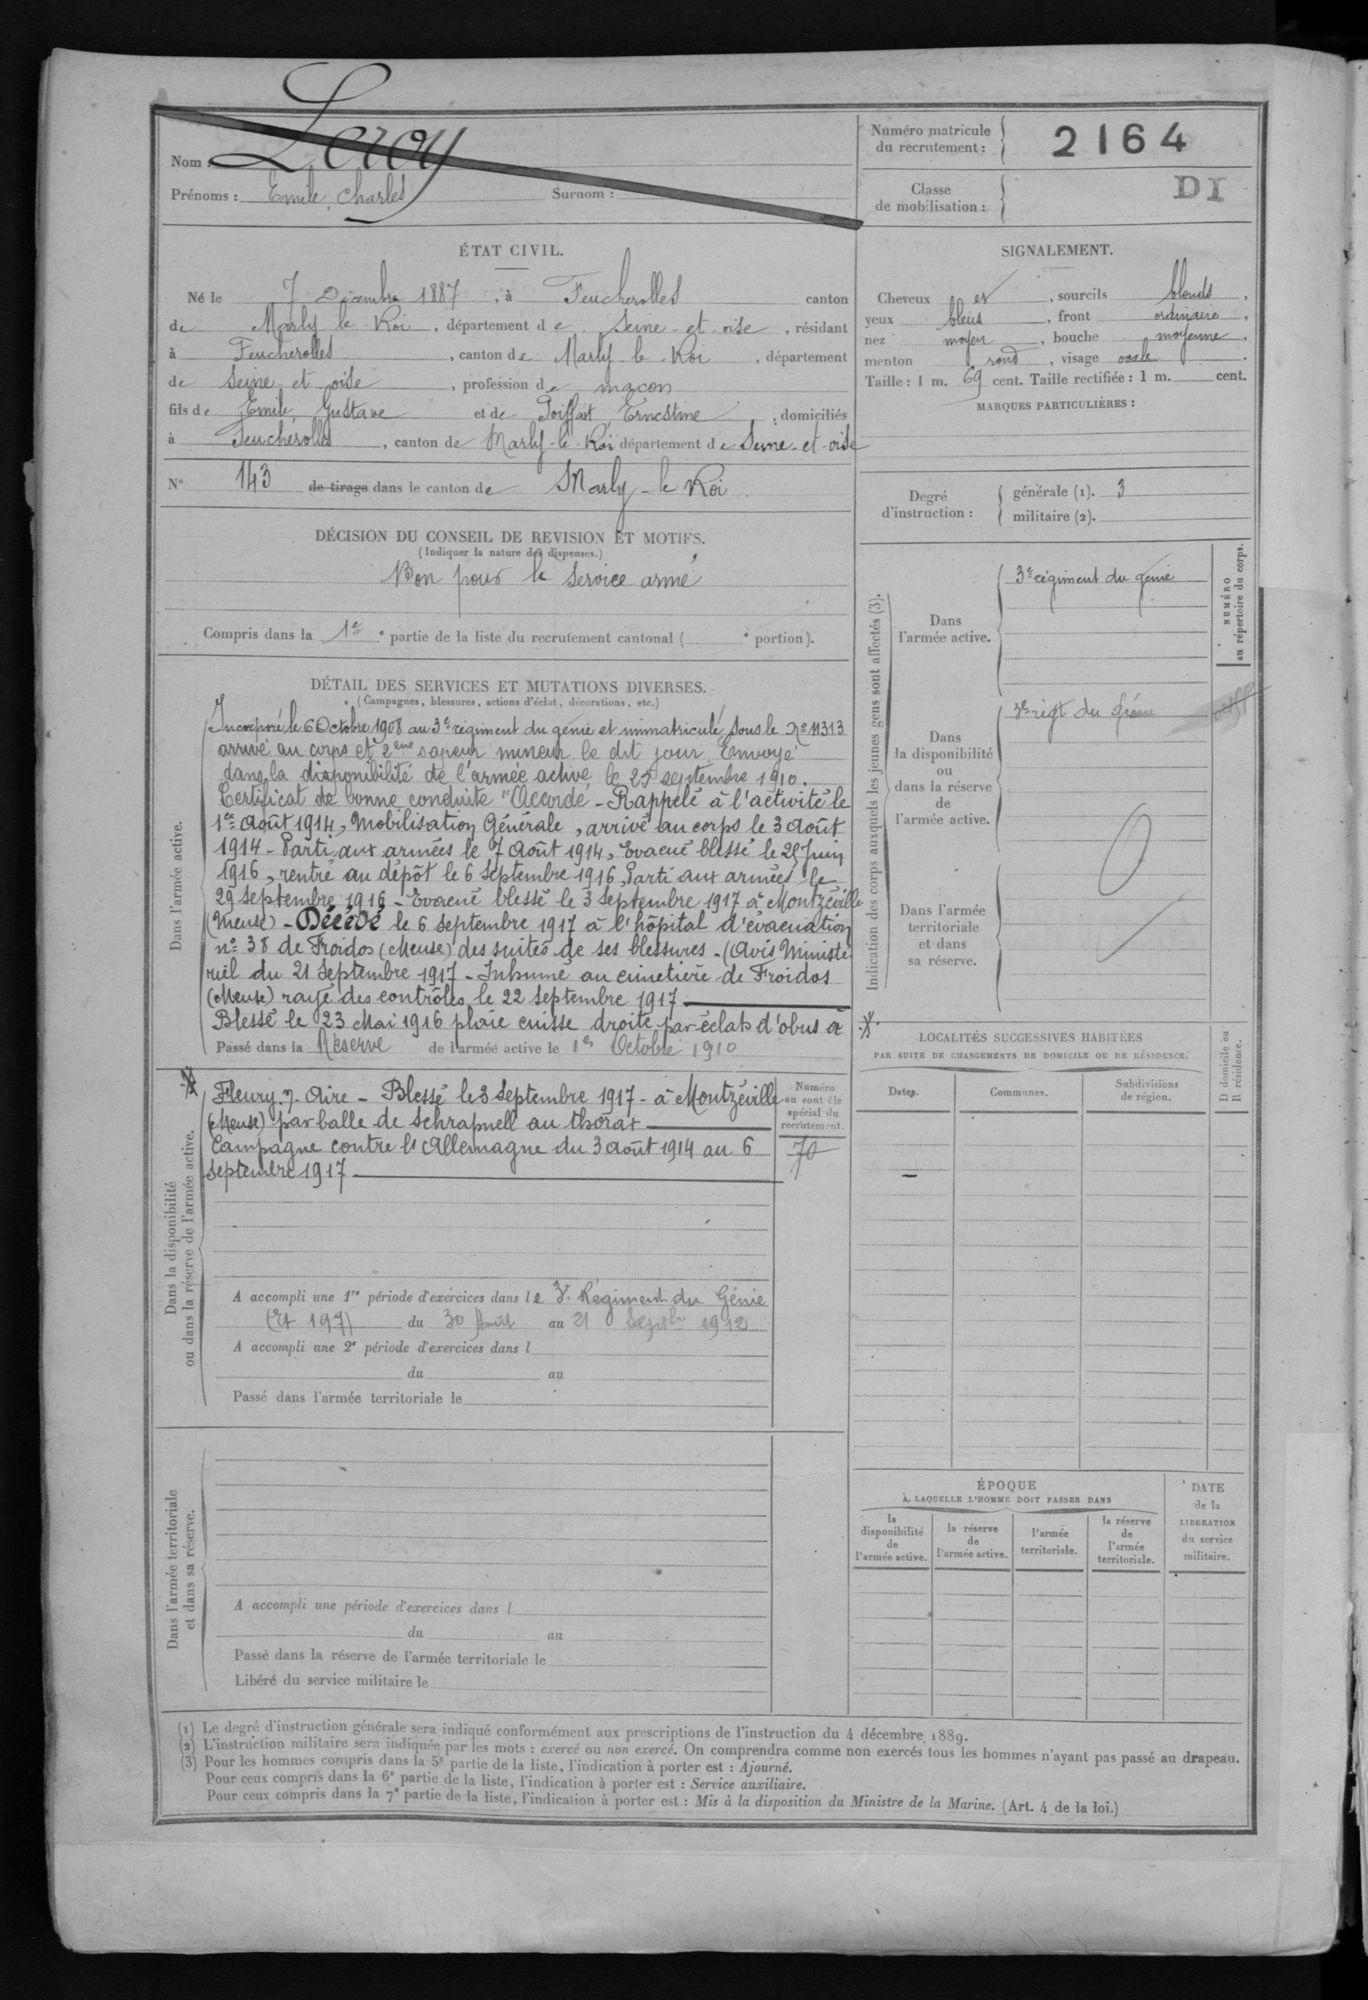 Nom : Leroy
Prénoms : Emile, Charles Surnom :
Numéro matricule du recrutement : 2164
Classe de mobilisation : DI
ÉTAT CIVIL.
Né le 7 Décembre 1887, à Feucherolles canton
de Marly le Roi, département de Seine-et-oise, résidant
à Feucherolles, canton de Marly-le-Roi, département
de Seine et oise, profession de maçon
fils de Emile Gustave et de Ernestine, domiciliés
à Feucherolles, canton de Marly-le-Roi département de Seine-et-oise
N° 143 de tirage dans le canton de Marly-le Roi.
SIGNALEMENT.
Cheveux et, sourcils blonds,
yeux bleus, front ordinaire,
nez moyen, bouche moyenne,
menton rond, visage ovale.
Taille : 1 m. 69 cent. Taille rectifiée : 1 m. cent.
MARQUES PARTICULIÈRES :
Degré d'instruction : générale (1). 3
militaire (2).
DÉCISION DU CONSEIL DE REVISION ET MOTIFS.
(Indiquer la nature des dispenses.)
Bon pour le Service armé
Compris dans la 1re partie de la liste du recrutement cantonal ( e portion).
DÉTAIL DES SERVICES ET MUTATIONS DIVERSES.
(Campagnes, blessures, actions d'éclat, décorations, etc.)
Dans l'armée active.
Incorporé le 6 Octobre 1908 au 3e régiment du génie et immatriculé sous le No 11313
arrivé au corps et 2ème sapeur mineur le dit jour Envoyé
dans la disponibilité de l'armée active le 25 septembre 1910.
Certificat de bonne conduite "Accordé" - Rappelé à l'activité le
1er Août 1914, Mobilisation Générale, arrivé au corps le 3 Août
1914 - Parti aux armées le 7 Août 1914, Evacué blessé le 25 Juin
1916, rentré au dépôt le 6 Septembre 1916, Parti aux armées le
29 septembre 1916 - Evacué blessé le 3 Septembre 1917 à Montzéville
(Meuse) - Décédé le 6 septembre 1917 à l'hôpital d'évacuation
no 38 de Froidos (Meuse) des suites de ses blessures - (Avis Ministé-
riel du 21 Septembre 1917 - Inhumé au cimetière de Froidos
(Meuse) rayé des contrôles le 22 septembre 1917
Blessé le 23 Mai 1916 plaie cuisse droite par éclats d'obus à
Passé dans la Réserve de l'armée active le 1er Octobre 1910
Indication des corps auxquels les jeunes gens sont affectés (3).
NUMÉRO au répertoire du corps.
Dans l'armée active.
3e régiment du génie
Dans la disponibilité ou dans la réserve de l'armée active.
3e régt du Génie
Dans l'armée territoriale et dans sa réserve.
Dans la disponibilité ou dans la réserve de l'armée active.
Fleury s/ Aire - Blessé le 3 Septembre 1917 - à Montzéville
(Meuse) par balle de schrapnell au thorax
Campagne contre l'Allemagne du 3 Août 1914 au 6
septembre 1917
Numéro au contrôle spécial du recrutement.
70
A accompli une 1re période d'exercices dans le 3e Régiment du Génie
du 30 Août au 21 Septbre 1912
A accompli une 2e période d'exercices dans l
du au
Passé dans l'armée territoriale le
LOCALITÉS SUCCESSIVES HABITÉES
PAR SUITE DE CHANGEMENTS DE DOMICILE OU DE RÉSIDENCE.
Dates. Communes. Subdivisions de région. D domicile ou R résidence.
Dans l'armée territoriale et dans sa réserve.
A accompli une période d'exercices dans l
du au
Passé dans la réserve de l'armée territoriale le
Libéré du service militaire le
ÉPOQUE
À LAQUELLE L'HOMME DOIT PASSER DANS
la disponibilité de l'armée active. la réserve de l'armée active. l'armée territoriale. la réserve de l'armée territoriale.
DATE de la LIBÉRATION du service militaire.
(1) Le degré d'instruction générale sera indiqué conformément aux prescriptions de l'instruction du 4 décembre 1889.
(2) L'instruction militaire sera indiquée par les mots : exercé ou non exercé. On comprendra comme non exercés tous les hommes n'ayant pas passé au drapeau.
(3) Pour les hommes compris dans la 5e partie de la liste, l'indication à porter est : Ajourné.
Pour ceux compris dans la 6e partie de la liste, l'indication à porter est : Service auxiliaire.
Pour ceux compris dans la 7e partie de la liste, l'indication à porter est : Mis à la disposition du Ministre de la Marine. (Art. 4 de la loi.)